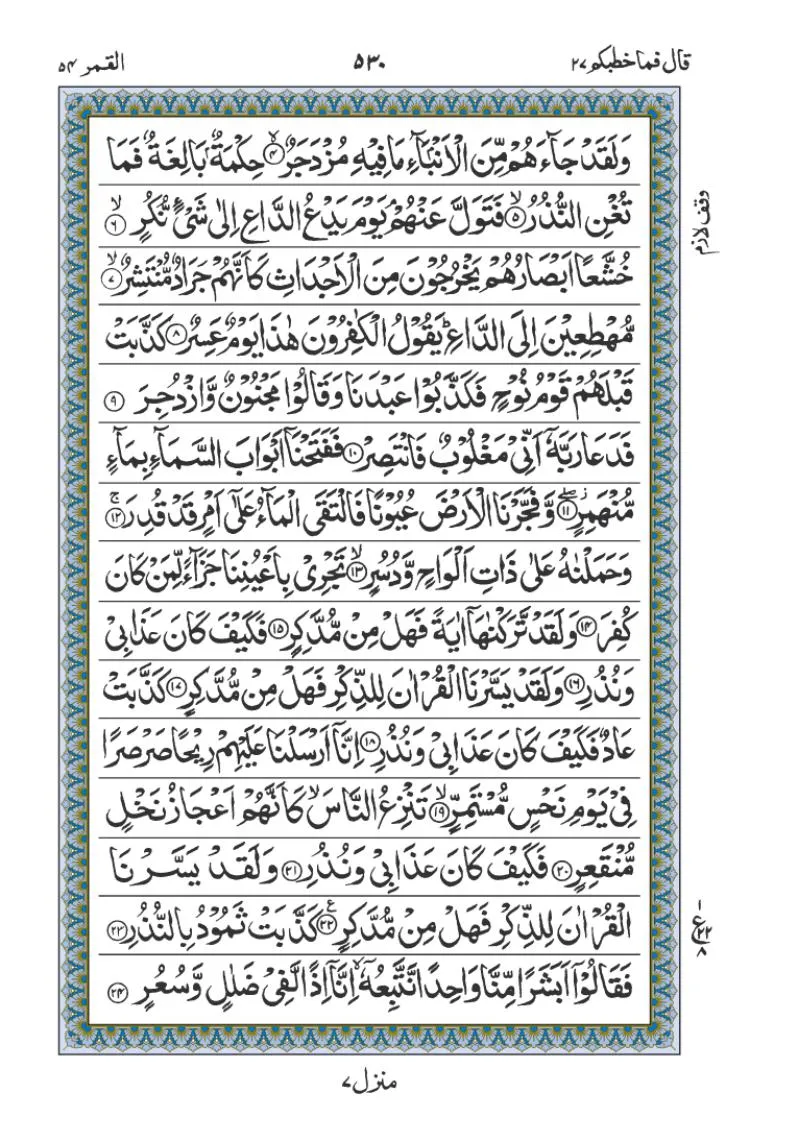 قال فما خطبکم ۲۷ ۵۳۰ القمر ۵۴
وَلَقَدْ جَآءَهُمْ مِّنَ الْاَنْۢبَآءِ مَا فِيْهِ مُزْدَجَرٌ ۙ‏﴿۴﴾ حِكْمَةٌۢ بَالِغَةٌ فَمَا
تُغْنِ النُّذُرُ ۙ‏﴿۵﴾ فَتَوَلَّ عَنْهُمْ ۘ يَوْمَ يَدْعُ الدَّاعِ اِلٰى شَىْءٍ نُّكُرٍ ۙ‏﴿۶﴾
خُشَّعًا اَبْصَارُهُمْ يَخْرُجُوْنَ مِنَ الْاَجْدَاثِ كَاَنَّهُمْ جَرَادٌ مُّنْتَشِرٌ ۙ‏﴿۷﴾
مُّهْطِعِيْنَ اِلَى الدَّاعِ ؕ يَقُوْلُ الْكٰفِرُوْنَ هٰذَا يَوْمٌ عَسِرٌ ﴿۸﴾ كَذَّبَتْ
قَبْلَهُمْ قَوْمُ نُوْحٍ فَكَذَّبُوْا عَبْدَنَا وَقَالُوْا مَجْنُوْنٌ وَّازْدُجِرَ ﴿۹﴾
فَدَعَا رَبَّهٗۤ اَنِّىْ مَغْلُوْبٌ فَانْتَصِرْ ﴿۱۰﴾ فَفَتَحْنَاۤ اَبْوَابَ السَّمَآءِ بِمَآءٍ
مُّنْهَمِرٍ ۖ‏﴿۱۱﴾ وَّفَجَّرْنَا الْاَرْضَ عُيُوْنًا فَالْتَقَى الْمَآءُ عَلٰٓى اَمْرٍ قَدْ قُدِرَ ۚ‏﴿۱۲﴾
وَحَمَلْنٰهُ عَلٰى ذَاتِ اَلْوَاحٍ وَّدُسُرٍ ۙ‏﴿۱۳﴾ تَجْرِىْ بِاَعْيُنِنَا جَزَآءً لِّمَنْ كَانَ
كُفِرَ ﴿۱۴﴾ وَلَقَدْ تَّرَكْنٰهَاۤ اٰيَةً فَهَلْ مِنْ مُّدَّكِرٍ ﴿۱۵﴾ فَكَيْفَ كَانَ عَذَابِىْ
وَنُذُرِ ﴿۱۶﴾ وَلَقَدْ يَسَّرْنَا الْقُرْاٰنَ لِلذِّكْرِ فَهَلْ مِنْ مُّدَّكِرٍ ﴿۱۷﴾ كَذَّبَتْ
عَادٌ فَكَيْفَ كَانَ عَذَابِىْ وَنُذُرِ ﴿۱۸﴾ اِنَّاۤ اَرْسَلْنَا عَلَيْهِمْ رِيْحًا صَرْصَرًا
فِىْ يَوْمِ نَحْسٍ مُّسْتَمِرٍّ ۙ‏﴿۱۹﴾ تَنْزِعُ النَّاسَ ۙ كَاَنَّهُمْ اَعْجَازُ نَخْلٍ
مُّنْقَعِرٍ ﴿۲۰﴾ فَكَيْفَ كَانَ عَذَابِىْ وَنُذُرِ ﴿۲۱﴾ وَلَقَدْ يَسَّرْنَا
الْقُرْاٰنَ لِلذِّكْرِ فَهَلْ مِنْ مُّدَّكِرٍ ﴿۲۲﴾ كَذَّبَتْ ثَمُوْدُ بِالنُّذُرِ ﴿۲۳﴾
فَقَالُوْۤا اَبَشَرًا مِّنَّا وَاحِدًا نَّتَّبِعُهٗۤ ۙ اِنَّاۤ اِذًا لَّفِىْ ضَلٰلٍ وَّسُعُرٍ ﴿۲۴﴾
وقف لازم
ع ۲۲ ۸
منزل ۷